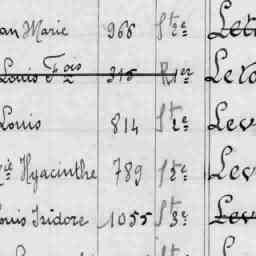 an Marie 966 St 2e Let
Louis Fois 315 R 1er Let
Louis 814 St 2e Lev
cie Hyacinthe 789 St 2e Lev
ouis Isidore 1055 St 3e Lev